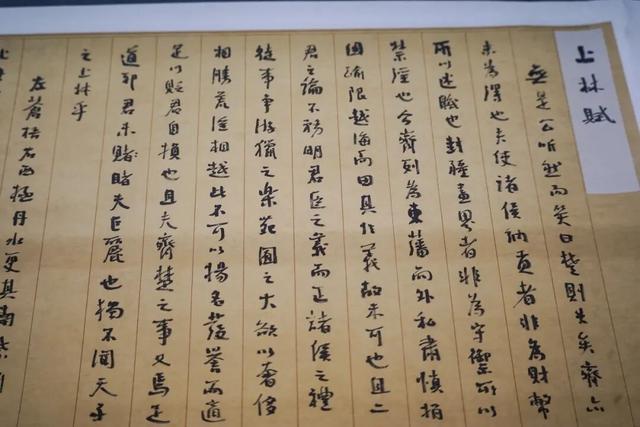 上林賦
無是公听然而笑曰楚則失矣齊亦
未為得也夫使諸侯納貢者非為財幣
所以述職也封疆畫界者非為守禦所以
禁淫也今齊列為東藩而外私肅慎捐
國踰限越海而田其於義故未可也且二
君之論不務明君臣之義而正諸侯之禮
徒事爭游獵之樂苑囿之大欲以奢侈
相勝荒淫相越此不可以揚名發譽而適
足以貶君自損也且夫齊楚之事又焉足
道邪君未賭睹夫巨麗也獨不聞天子
之上林乎
左蒼梧右西極丹水更其南紫